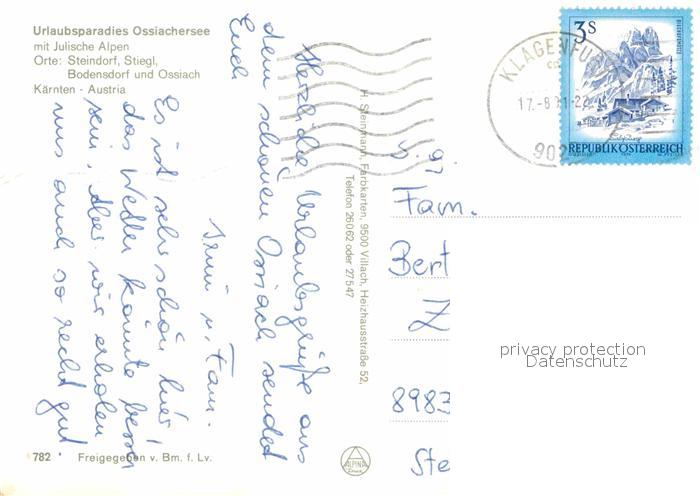 Urlaubsparadies Ossiachersee
mit Julische Alpen
Orte: Steindorf, Stiegl,
Bodensdorf und Ossiach
Kärnten - Austria
Herzliche Urlaubsgrüße aus
dem schönen Ossiach sendet
Euch
Irmi u. Fam.
Es ist sehr schön hier!
das Wetter könnte besser
sein. Aber wir erholen
uns auch so recht gut.
H. Steinmann, Farbkarten, 9500 Villach, Heizhausstraße 52,
Telefon 26062 oder 27547
KLAGENFU
17.-8
902
3S
REPUBLIK ÖSTERREICH
Fam.
Bert
Z
8983
Ste
privacy protection
Datenschutz
782
Freigegeben v. Bm. f. Lv.
ALPINA